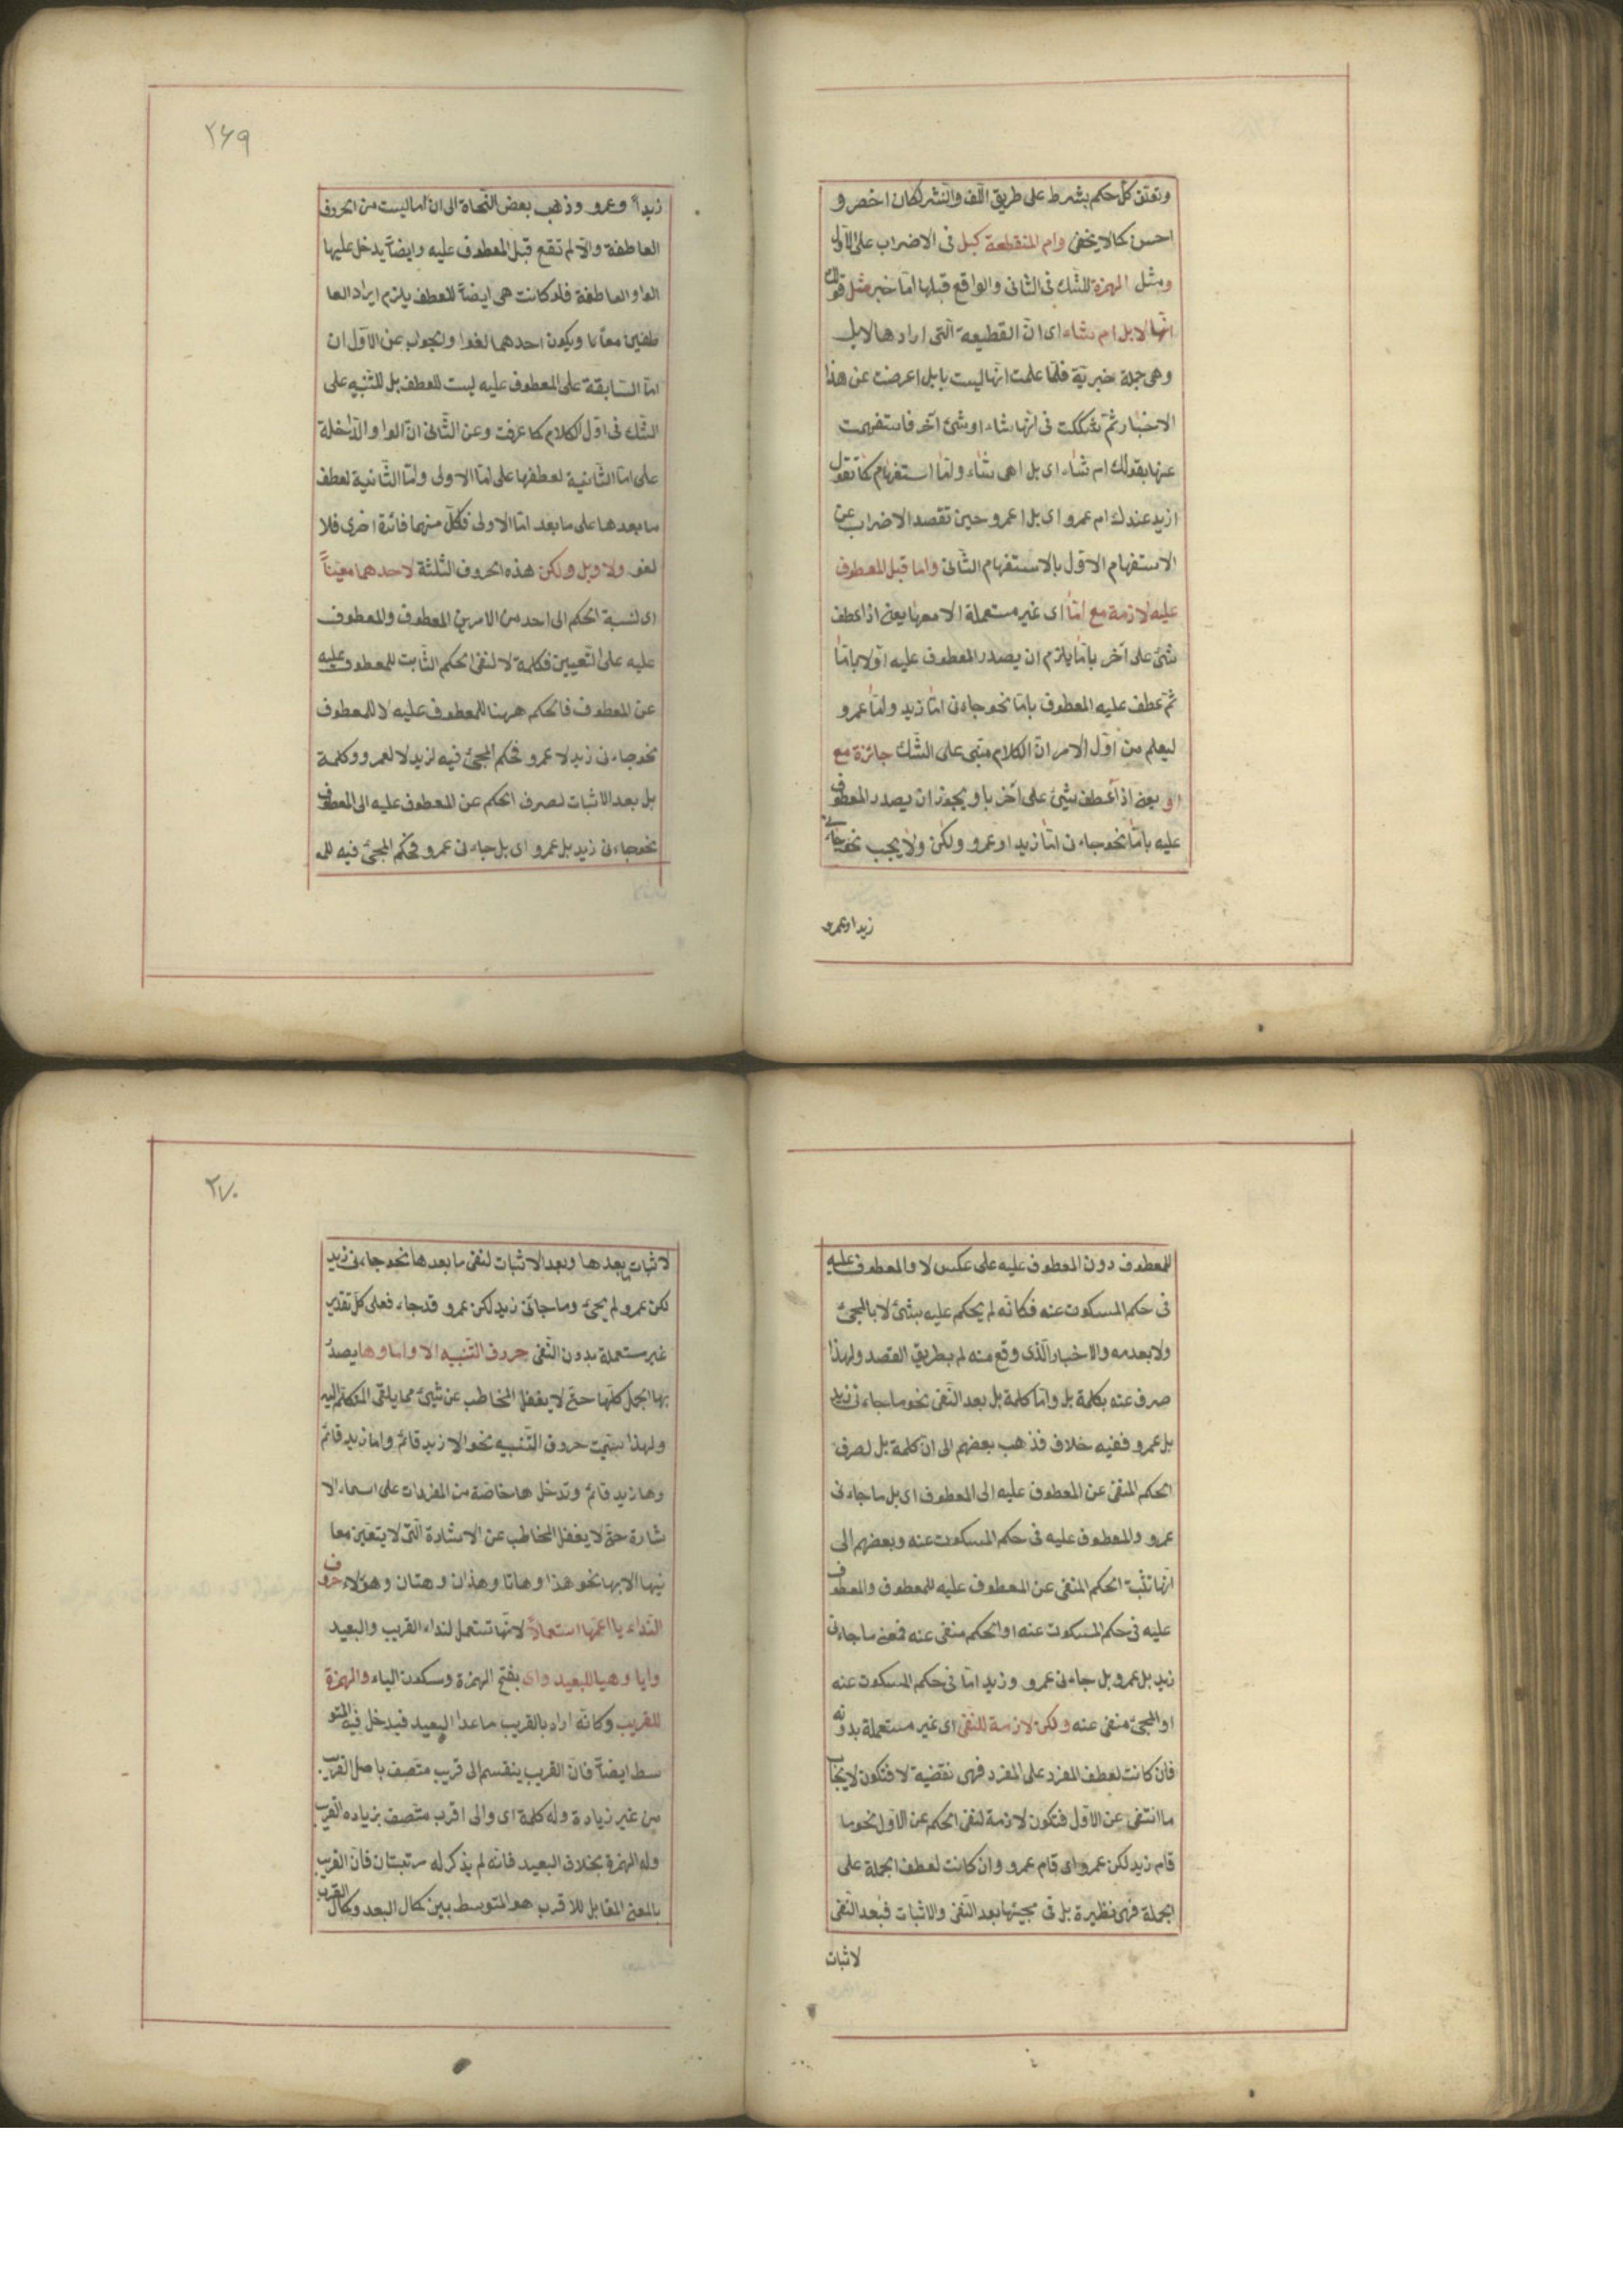 وتعلق كل حكم بشرط على طريق اللف والنشر لكان اخصر و
احسن كما لا يخفى وام المنقطعة كبل فى الاضراب على الاول
ومثل الهمزة للشك فى الثانى والواقع قبلها اما خبر مثل قولك
انها لابل ام شاء اى ان القطيعة التى اراد ها لابل
وهى جملة خبرية فلما علمت انها ليست بابل اعرضت عن هذا
الاخبار ثم شككت فى انها شاء او شئ آخر فاستفهمت
عنها بقولك ام شاء اى بل اهى شاء واما استفهام كما تقول
ازيد عندك ام عمرو اى بل اعمرو حين تقصد الاضراب عن
الاستفهام الاول بالاستفهام الثانى واما قبل المعطوف
عليه لازمة مع اما اى غير مستعملة الا معها يعنى اذا عطف
شئ على آخر باما يلزم ان يصدر المعطوف عليه اولا باما
ثم عطف عليه المعطوف باما نحو جاءنى اما زيد واما عمرو
ليعلم من اول الامر ان الكلام مبنى على الشك جائزة مع
او يعنى اذا عطف شئ على آخر باو يجوز ان يصدر المعطوف
عليه باما نحو جاءنى اما زيد او عمرو ولكن ولا يجب نحو جاءنى
زيد او عمرو
٢٦٩
زيد او عمرو وذهب بعض النحاة الى ان اما ليست من الحروف
العاطفة والا لم تقع قبل المعطوف عليه وايضا يدخل عليها
الواو العاطفة فلو كانت هى ايضا للعطف يلزم ايراد العا
طفين معا ويكون احدهما لغوا والجواب عن الاول ان
اما السابقة على المعطوف عليه ليست للعطف بل للتنبيه على
الشك فى اول الكلام كما عرفت وعن الثانى ان الواو الداخلة
على اما الثانية لعطفها على اما الاولى واما الثانية لعطف
ما بعدها على ما بعد اما الاولى فلكل منهما فائدة اخرى فلا
لغو ولا وبل ولكن هذه الحروف الثلثة لاحدهما معينا
اى لنسبة الحكم الى احد من الامرين المعطوف والمعطوف
عليه على التعيين فكلمة لا لنفى الحكم الثابت للمعطوف عليه
عن المعطوف فالحكم ههنا للمعطوف عليه لا للمعطوف
نحو جاءنى زيد لا عمرو فحكم المجئ فيه لزيد لا لعمرو وكلمة
بل بعد الاثبات لصرف الحكم عن المعطوف عليه الى المعطوف
نحو جاءنى زيد بل عمرو اى بل جاءنى عمرو فحكم المجئ فيه للمـ
للمعطوف دون المعطوف عليه على عكس لا والمعطوف عليه
فى حكم المسكوت عنه فكانه لم يحكم عليه بشئ لا بالمجئ
ولا بعدمه والاخبار الذى وقع منه لم بطريق القصد ولهذا
صرف عنه بكلمة بل واما كلمة بل بعد النفى نحو ما جاءنى زيد
بل عمرو ففيه خلاف فذهب بعضهم الى ان كلمة بل لصرف
الحكم المنفى عن المعطوف عليه الى المعطوف اى بل ما جاءنى
عمرو والمعطوف عليه فى حكم المسكوت عنه وبعضهم الى
انها تثبت الحكم المنفى عن المعطوف عليه للمعطوف والمعطوف
عليه فى حكم المسكوت عنه او الحكم منفى عنه فمعنى ما جاءنى
زيد بل عمرو بل جاءنى عمرو وزيد اما فى حكم المسكوت عنه
او المجئ منفى عنه ولكن لازمة للنفى اى غير مستعملة بدونه
فان كانت لعطف المفرد على المفرد فهى نقيضة لا فتكون لايجاب
ما انتفى عن الاول فتكون لازمة لنفى الحكم عن الاول نحو ما
قام زيد لكن عمرو اى قام عمرو وان كانت لعطف الجملة على
الجملة فهى نظيرة بل فى مجيئها بعد النفى والاثبات فبعد النفى
لاثبات
٢٧٠
لاثبات ما بعدها وبعد الاثبات لنفى ما بعدها نحو جاءنى زيد
لكن عمرو لم يجئ وما جاءنى زيد لكن عمرو قد جاء فعلى كل تقدير
غير مستعملة بدون النفى حروف التنبيه الا واما وها يصدر
بها الجمل كلها حتى لا يغفل المخاطب عن شئ مما يلقى المتكلم اليه
ولهذا سميت حروف التنبيه نحو الا زيد قائم واما زيد قائم
وها زيد قائم وتدخل ها خاصة من المفردات على اسماء الا
شارة حتى لا يغفل المخاطب عن الاشارة التى لا يتعين معا
نيها الا بها نحو هذا وهاتا وهذان وهتان وهؤلاء حروف
النداء يا اعمها استعمالا لانها تستعمل لنداء القريب والبعيد
وايا وهيا للبعيد واى بفتح الهمزة وسكون الياء والهمزة
للقريب وكانه اراد بالقريب ما عدا البعيد فيدخل فيه المتو
سط ايضا فان القريب ينقسم الى قريب متصف باصل القرب
من غير زيادة وله كلمة اى والى اقرب متصف بزيادة القرب
وله الهمزة بخلاف البعيد فانه لم يذكر له مرتبتان فان القريب
بالمعنى المقابل للاقرب هو المتوسط بين كمال البعد وكمال القرب